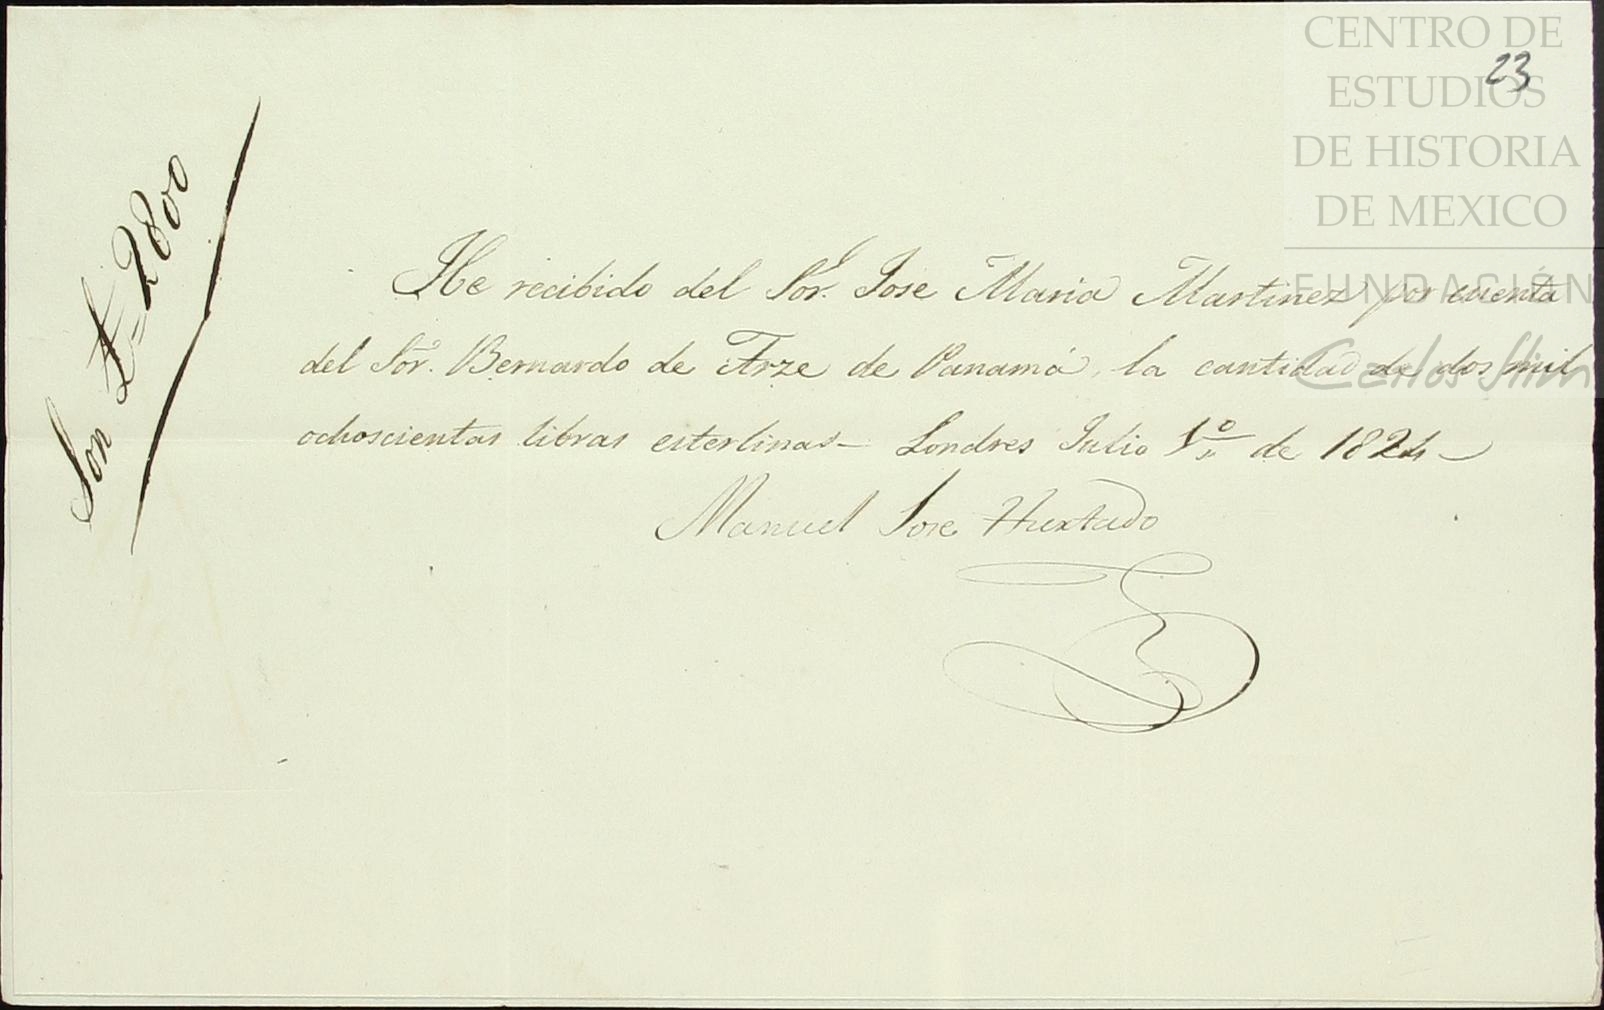 CENTRO DE
ESTUDIOS
DE HISTORIA
DE MEXICO
FUNDACIÓN
Carlos Slim
23
Son £=2800
He recibido del Sor. Jose Maria Martinez por cuenta
del Sor. Bernardo de Arze de Panamá, la cantidad de dos mil
ochoscientas libras esterlinas— Londres Julio 1º de 1824—
Manuel Jose Hurtado